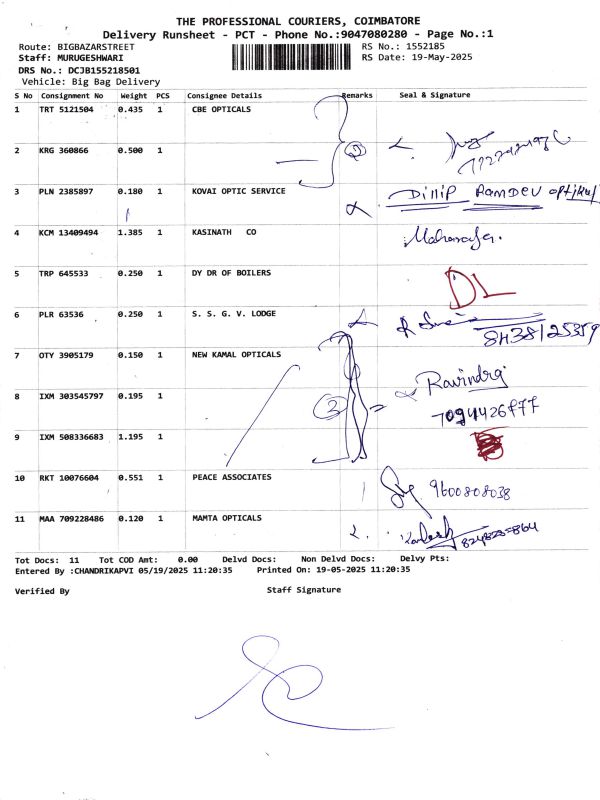 THE PROFESSIONAL COURIERS, COIMBATORE
Delivery Runsheet - PCT - Phone No.:9047080280 - Page No.:1
Route: BIGBAZARSTREET RS No.: 1552185
Staff: MURUGESHWARI RS Date: 19-May-2025
DRS No.: DCJB155218501
Vehicle: Big Bag Delivery
S No Consignment No Weight PCS Consignee Details Remarks Seal & Signature
1 TRT 5121504 0.435 1 CBE OPTICALS
2 KRG 360866 0.500 1 2
3 PLN 2385897 0.180 1 KOVAI OPTIC SERVICE Dillip RAMDEV
4 KCM 13409494 1.385 1 KASINATH CO
5 TRP 645533 0.250 1 DY DR OF BOILERS DL
6 PLR 63536 0.250 1 S. S. G. V. LODGE 8438125359
7 OTY 3905179 0.150 1 NEW KAMAL OPTICALS Ravindra
8 IXM 303545797 0.195 1 3
9 IXM 508336683 1.195 1
10 RKT 10076604 0.551 1 PEACE ASSOCIATES 9600808038
11 MAA 709228486 0.120 1 MAMTA OPTICALS
Tot Docs: 11 Tot COD Amt: 0.00 Delvd Docs: Non Delvd Docs: Delvy Pts:
Entered By :CHANDRIKAPVI 05/19/2025 11:20:35 Printed On: 19-05-2025 11:20:35
Verified By Staff Signature